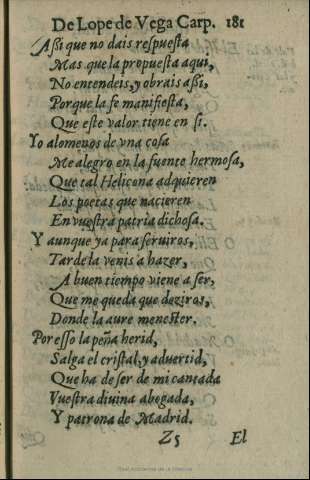 De Lope de Vega Carp. 181
Aßi que no dais respuesta
Mas que la propuesta aqui,
No entendeis, y obrais aßi,
Porque la fe manifiesta,
Que este valor tiene en si.
Yo alomenos de vna cosa
Me alegro en la fuente hermosa,
Que tal Helicona adquieren
Los poetas que nacieren
En vuestra patria dichosa.
Y aunque ya para seruiros,
Tarde la venis a hazer,
A buen tiempo viene a ser,
Que me queda que deziros,
Donde la aure menester.
Por esso la peña herid,
Salga el cristal, y aduertid,
Que ha de ser de mi cantada
Vuestra diuina abogada,
Y patrona de Madrid.
Z5 El